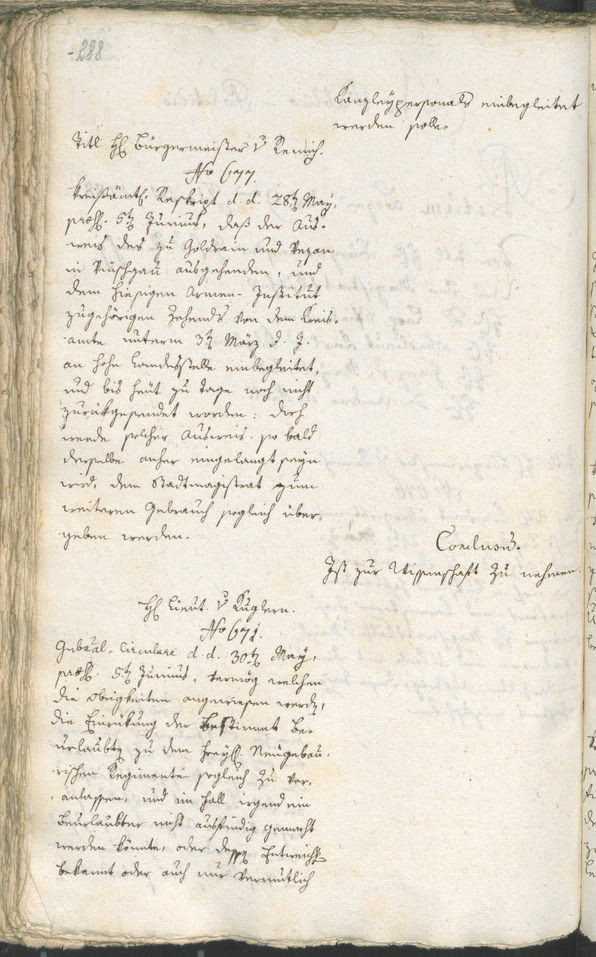 -288
Kanzleypersonals einbegleitet
werden solle.
Titl. H. Bürgermeister v. Remich.
No 677.
Kreisämtl. Reskript d. d. 28t May,
präs. 5t Junius, daß der Aus-
weis des zu Goldrain und Vezan
in Vinschgau ausgehenden, und
dem hiesigen Armen-Institut
zugehörigen Zehends von dem Kreis-
amte unterm 3t März d. J.
an hohe Landesstelle einbegleitet,
und bis heut zu Tage noch nicht
zurückgesendet worden: doch
werde solcher Ausweis, so bald
derselbe anher eingelangt seyn
wird, dem Stadtmagistrat zum
weiteren Gebrauch sogleich über-
geben werden.
Conclusum.
Ist zur Wissenschaft zu nehmen.
H. Lieut. v. Kuglern.
No 678.
Gubeal-Circulare d. d. 30t May,
präs. 5t Junius, vermög welchen
die Obrigkeiten angewiesen werden,
die Einrükung der bestimmt be-
urlaubten zu dem Freyh. Neugebau-
rischen Regimente sogleich zu ver-
anlassen, und im Fall irgend ein
Beurlaubter nicht ausfindig gemacht
werden könnte, oder dessen Entweichung
bekannt oder auch nur vermutlich